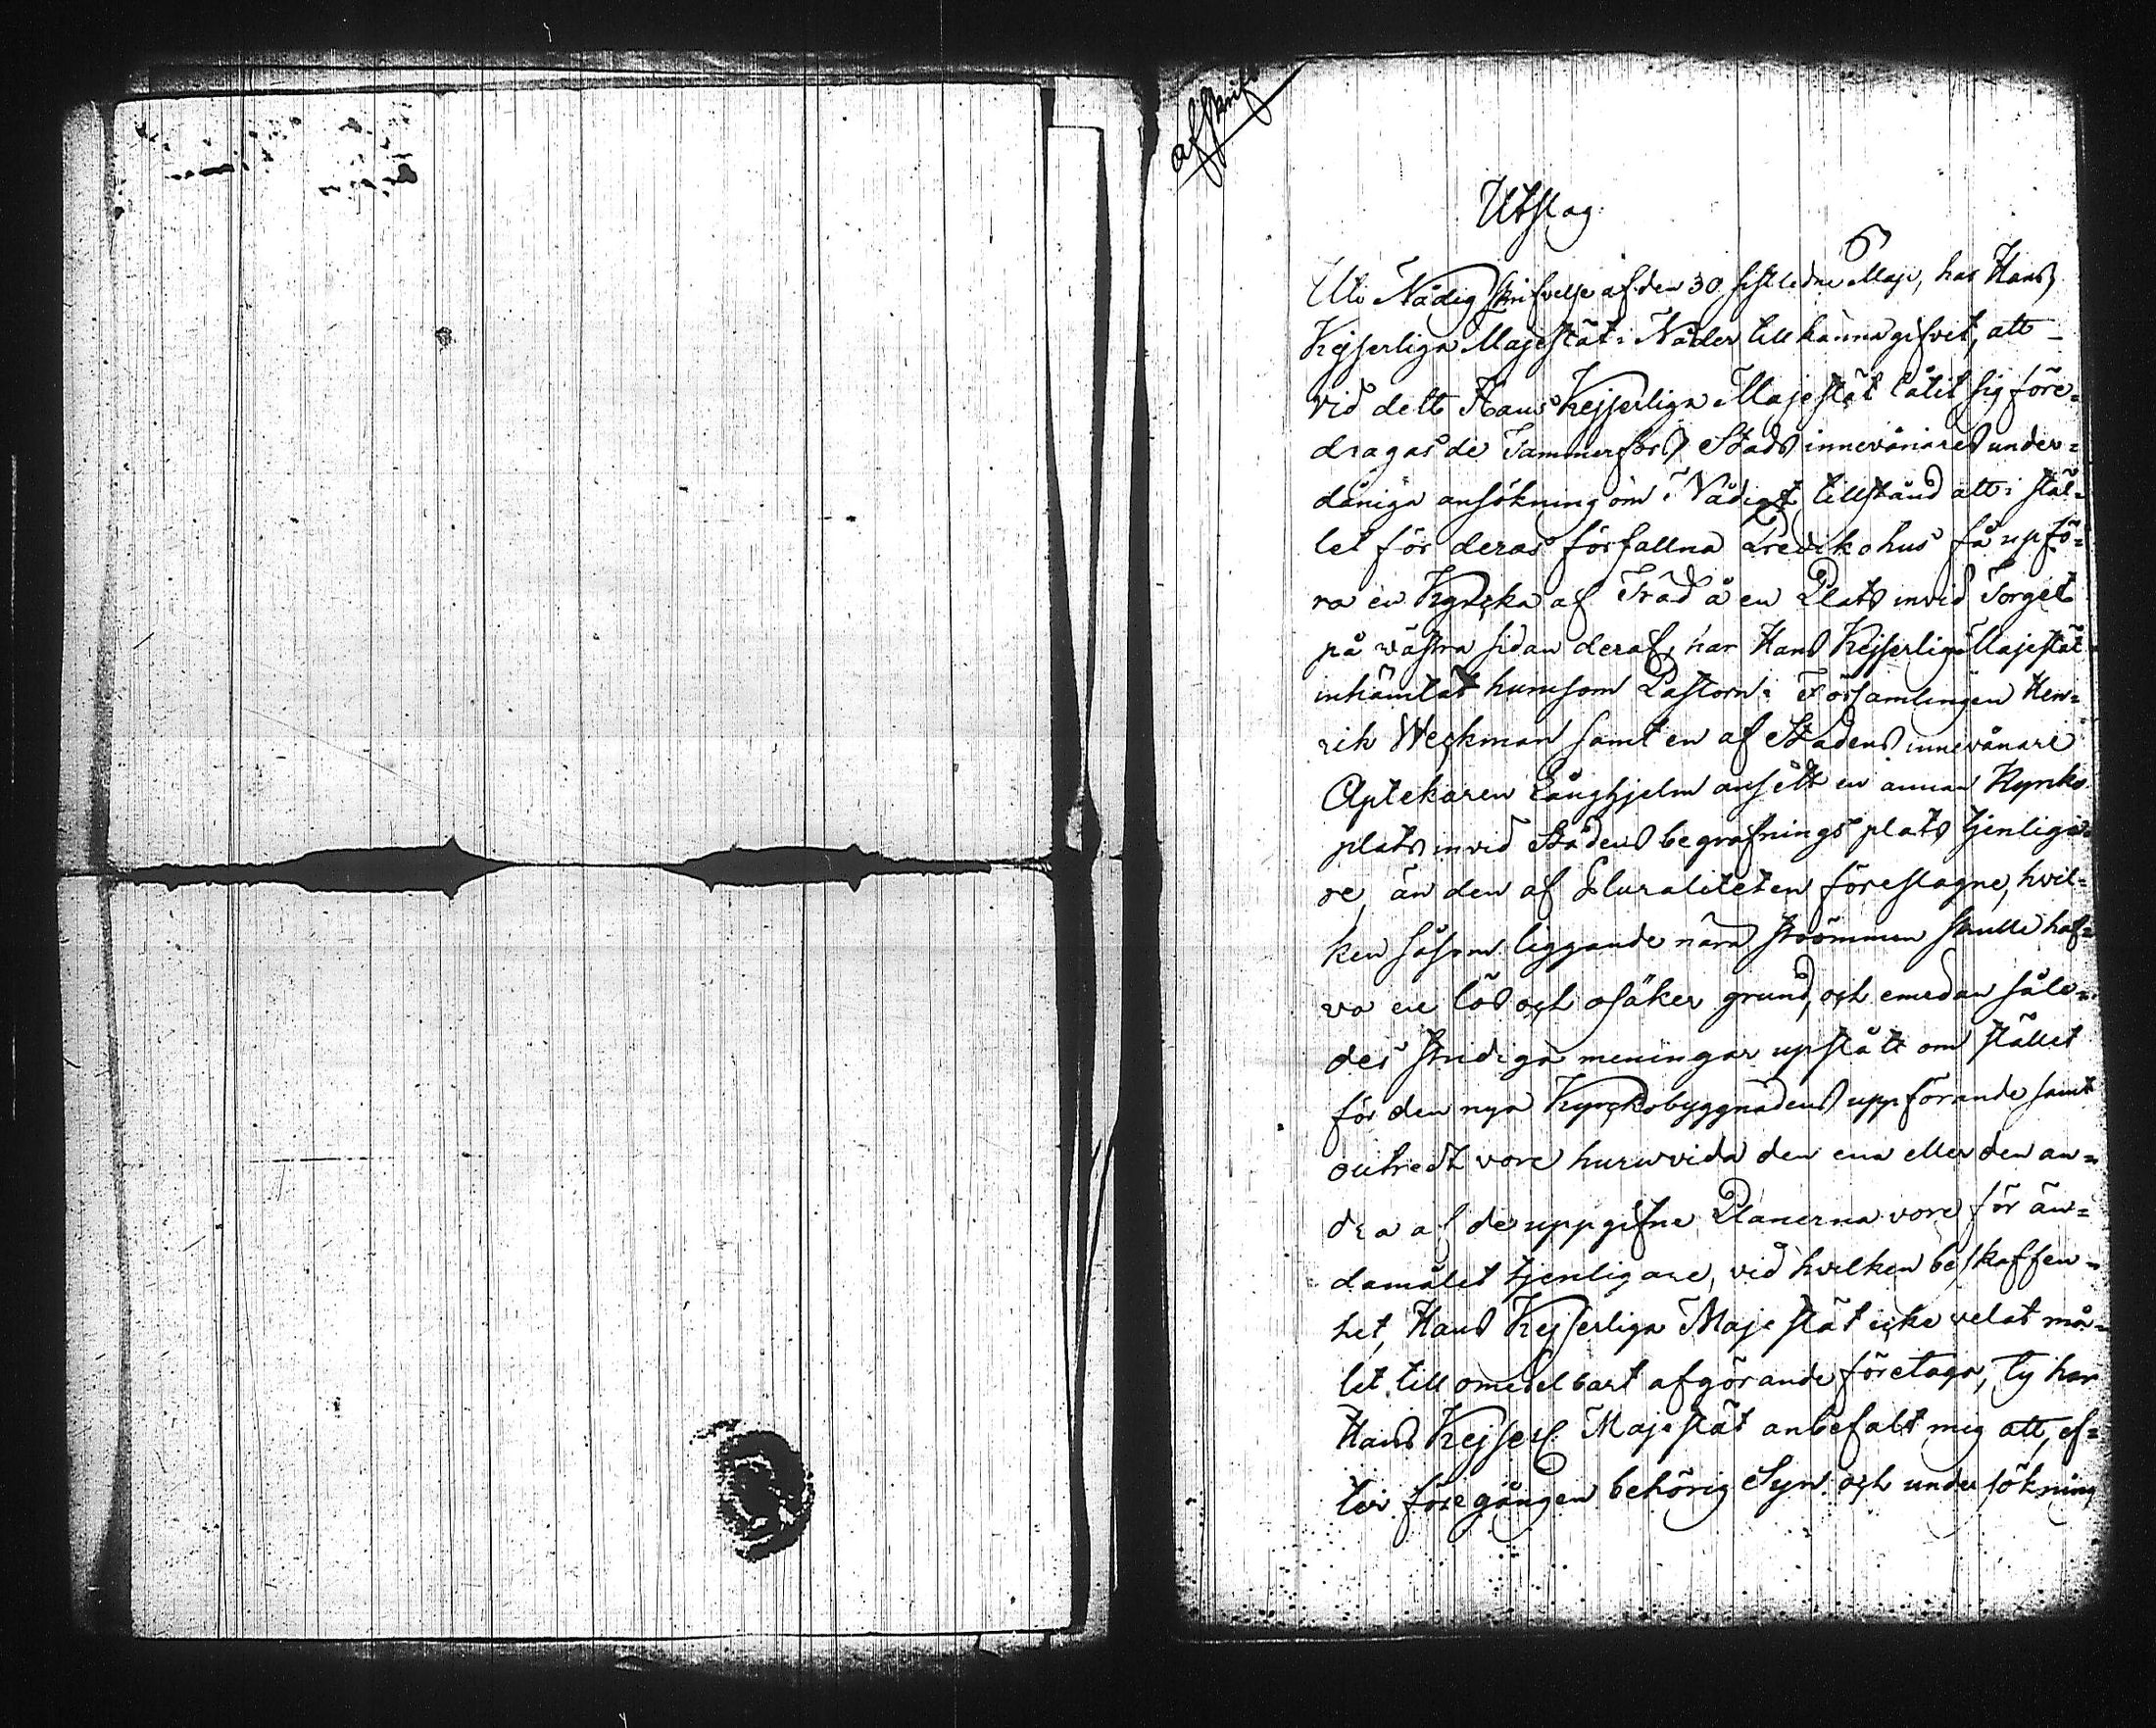 afskrift
Utslag.
Uti Nådig Skrifvelse af den 30 sistledne Maji, har Hans
Kejserliga Majestät i Nåder tillkännagifvit, att
vid det Hans Kejserliga Majestät låtit sig före=
dragas de Tammerfors Stads innevånares under=
dåniga ansökning om Nådigt tillstånd att i stäl=
let för deras förfallna Predikohus få upfö=
ra en Kyrcka af Träd å en Plats invid Torget
på västra sidan deraf, har Hans Kejserliga Majestät
inhämtat hurusom Pastorn i Församlingen Hen=
rik Weckman samt en af Stadens innevånare
Aptekaren Långhjelm ansett en annan Kyrko
plats invid Stadens begrafnings plats tjenliga=
re, än den af Pluraliteten föreslagne, hvil=
ken såsom liggande nära strömmen skulle haf=
va en lös och osäker grund, och emedan såle=
des stridiga meningar upstått om stället
för den nya Kyrckobyggnadens uppförande samt
outredt vore huruvida den ena eller den an=
dra af de uppgifne Planerna vore för än=
damålet tjenligare, vid hvilken beskaffen=
het, Hans Kejserliga Majestät icke velat må=
let till omedelbart afgörande företaga, ty har
Hans Kejserl. Majestät anbefalt mig att, ef=
ter föregången behörig Syn och undersökning